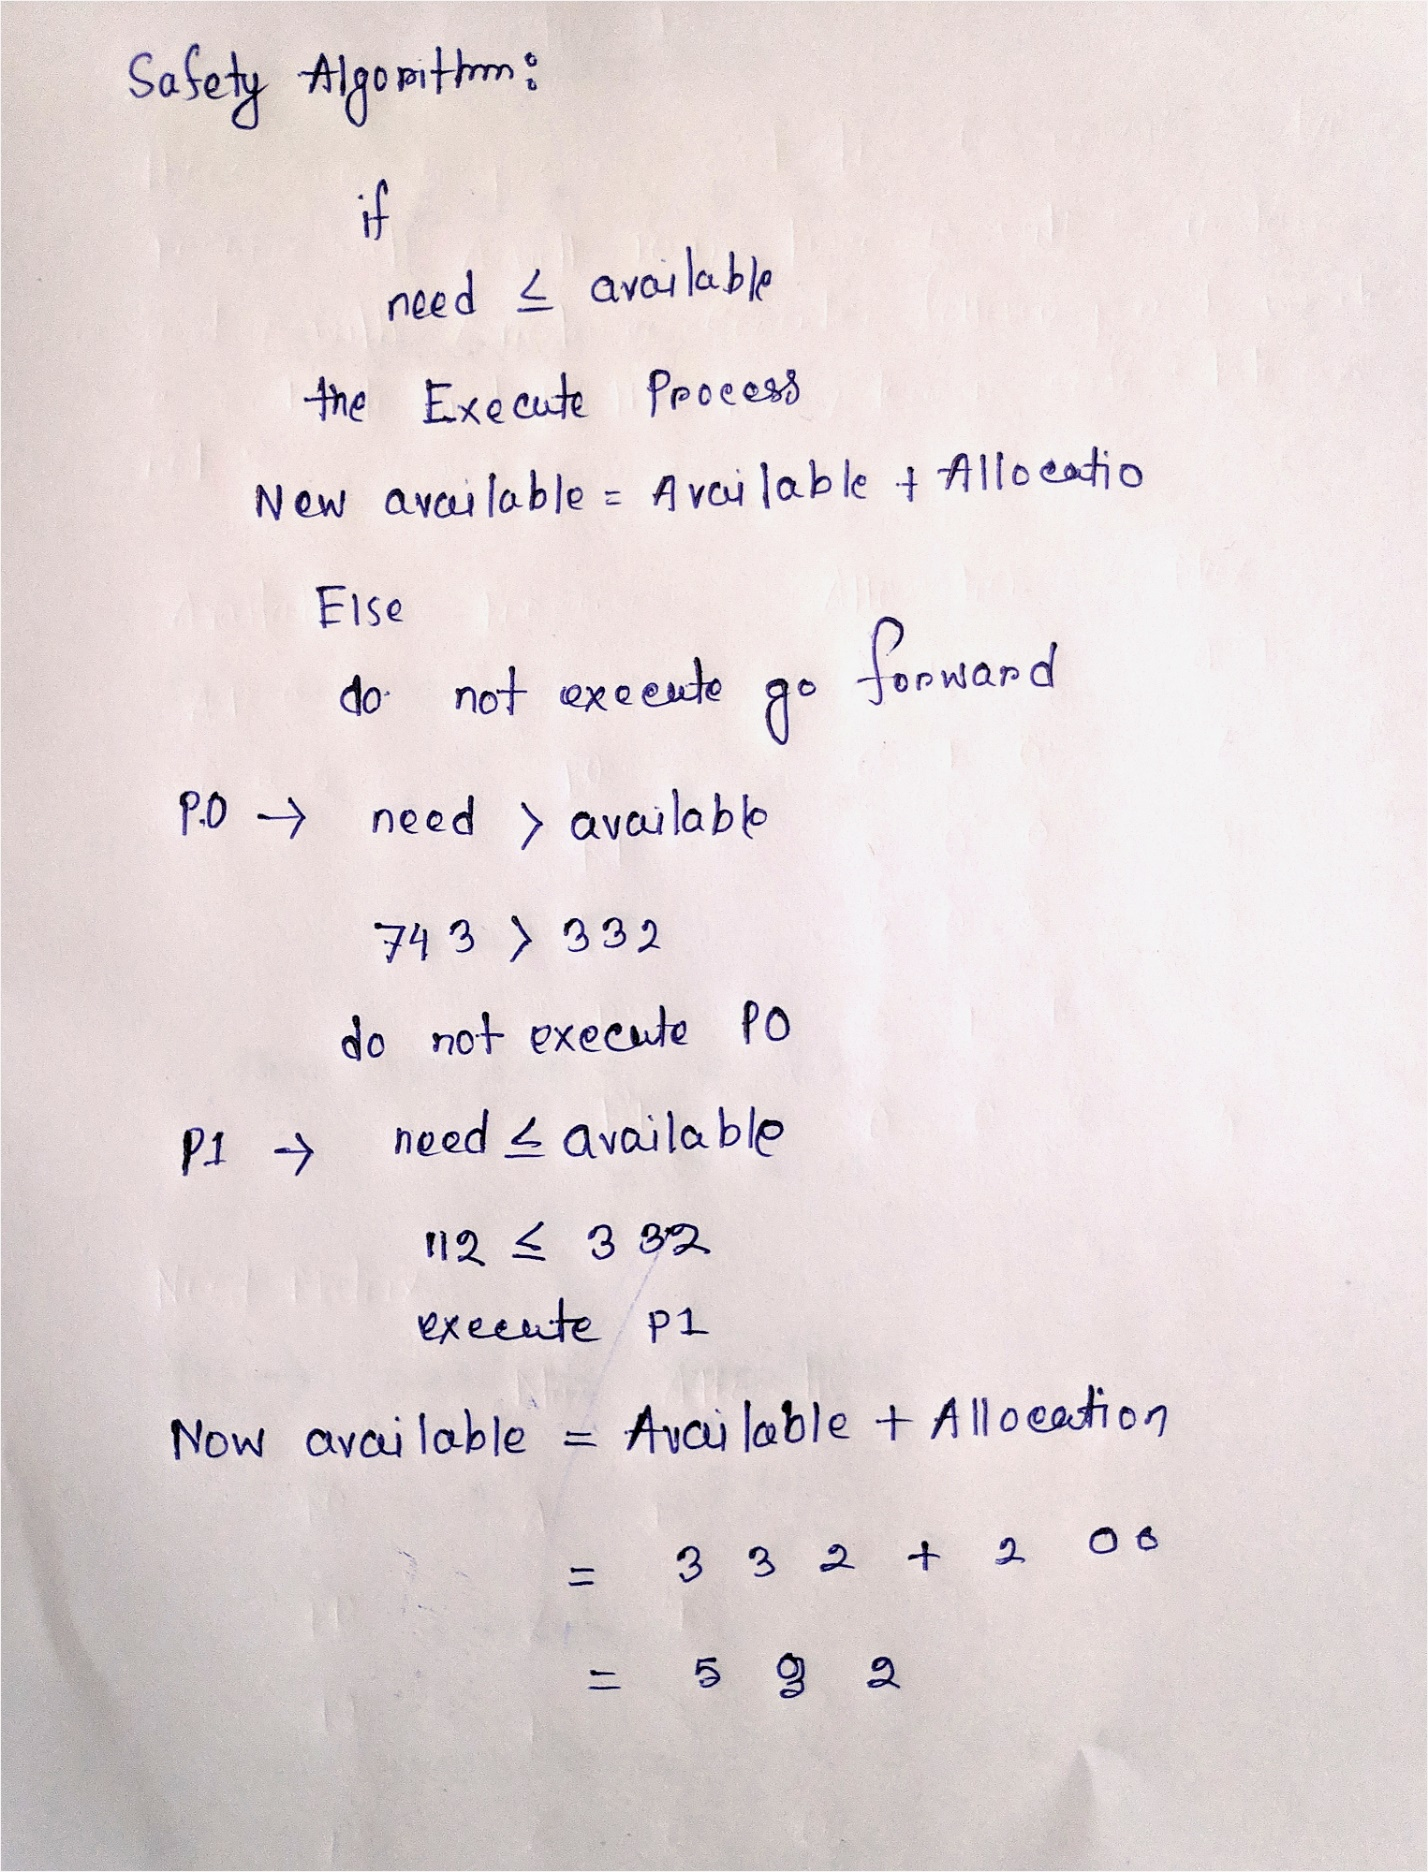 Safety Algorithm:
if
need ≤ available
the Execute Process
New available = Available + Allocatio
Else
do not execute go forward
P.0 → need > available
743 > 332
do not execute P0
P1 → need ≤ available
112 ≤ 332
execute P1
Now available = Available + Allocation
= 3 3 2 + 2 0 0
= 5 3 2